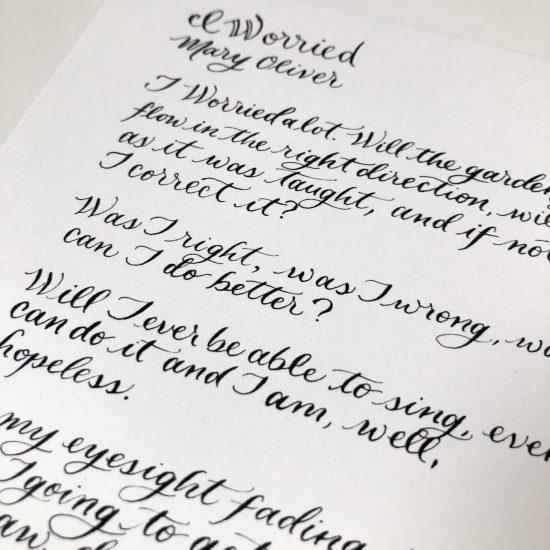 I Worried
Mary Oliver
I Worried a lot. Will the garden
flow in the right direction, will
as it was taught, and if not
I correct it?
Was I right, was I wrong, w
can I do better?
Will I ever be able to sing, even
can do it and I am, well,
hopeless.
my eyesight fading
I going to get